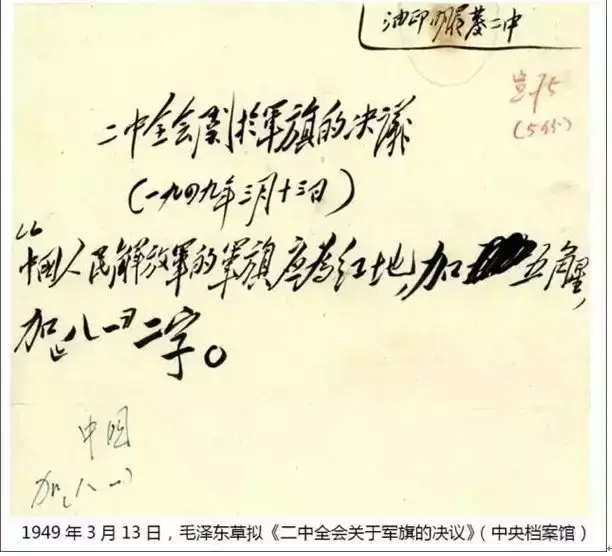 二中全会關于軍旗的决議
（一九四九年三月十三日）
中國人民解放軍的軍旗应为红地，加五角星，
加“八一”二字。
中国
加“八一”
1949 年 3 月 13 日，毛泽东草拟《二中全会关于军旗的决议》（中央档案馆）